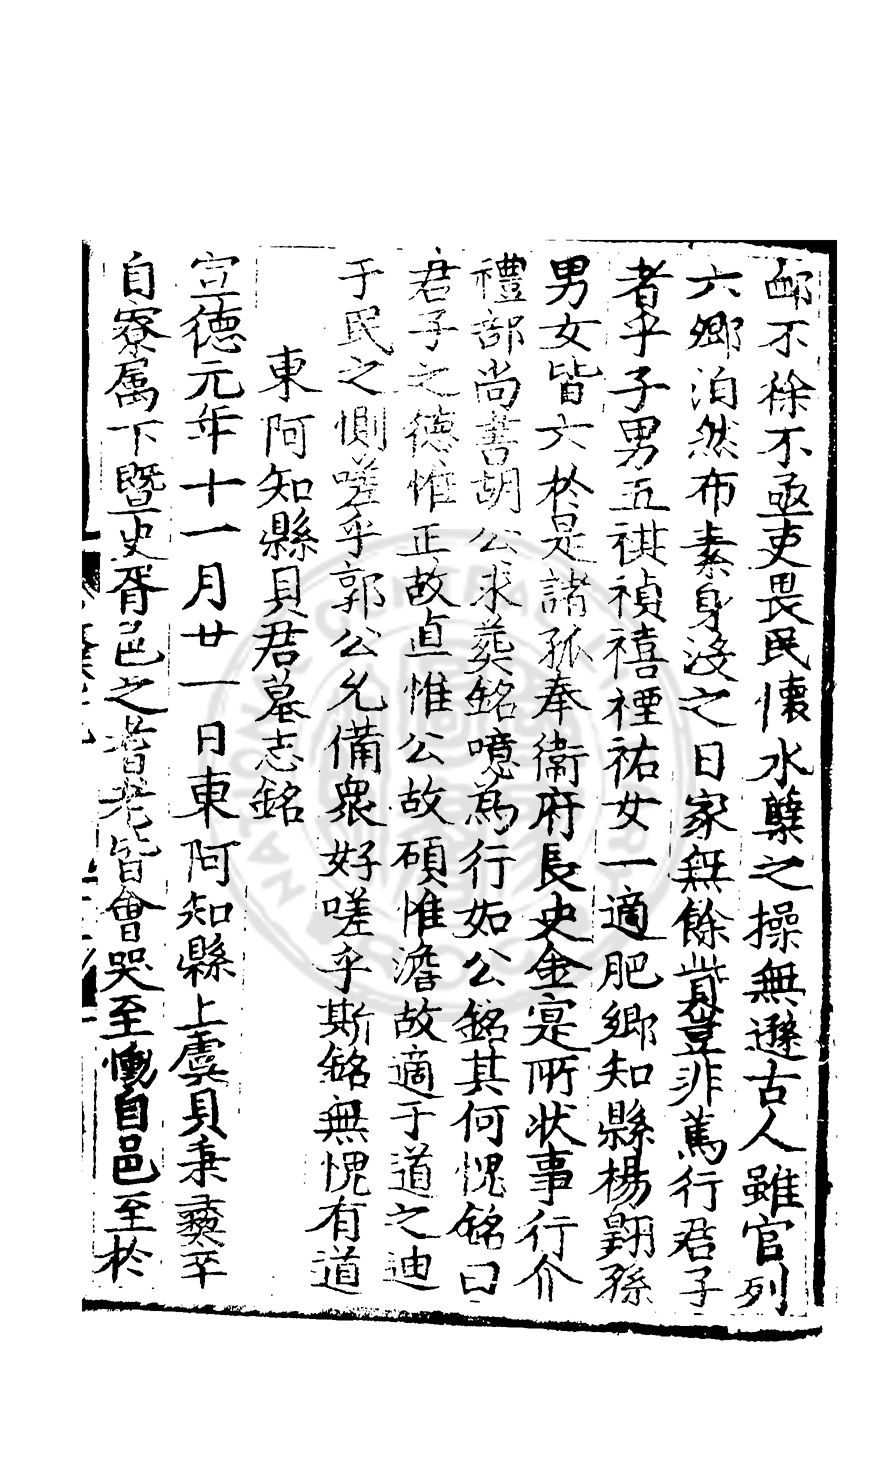 䘏不徐不亟吏畏民懷水蘗之操無遜古人雖官列
六卿泊然布素身沒之日家無餘貲豈非篤行君子
者乎子男五祺禎禧禋祐女一適肥鄉知縣楊翺孫
男女皆六於是諸孤奉衞府長史金寔所狀事行介
禮部尚書胡公求葬銘噫為行如公銘其何愧銘曰
君子之德惟正故直惟公故碩惟澹故適于道之迪
于民之惻嗟乎郭公允備衆好嗟乎斯銘無愧有道
東阿知縣貝君墓志銘
宣德元年十一月廿一日東阿知縣上虞貝秉彝卒
自寮屬下暨史胥邑之耆老皆會哭至慟自邑至於